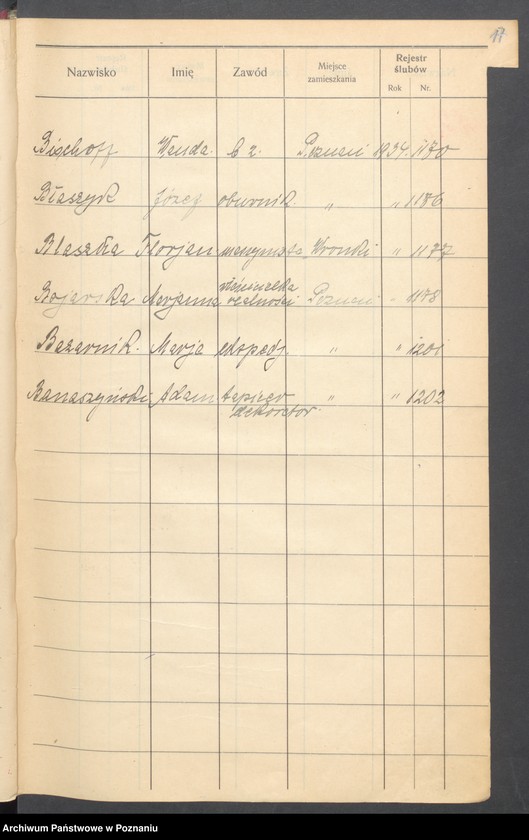 17
Nazwisko Imię Zawód Miejsce zamieszkania Rejestr ślubów
Rok Nr.
Bischoff Wanda b z. Poznań 1934. 1170
Błaszyk Józef obuwnik. " " 1186
Blaszka Florjan maszynista Wronki " 1177
Bojarska Marjanna właścicielka realności Poznań " 1178
Bazarnik. Marja ekspedj. " " 1201
Banaszyński Adam tapicer dekorator. " " 1202
Archiwum Państwowe w Poznaniu